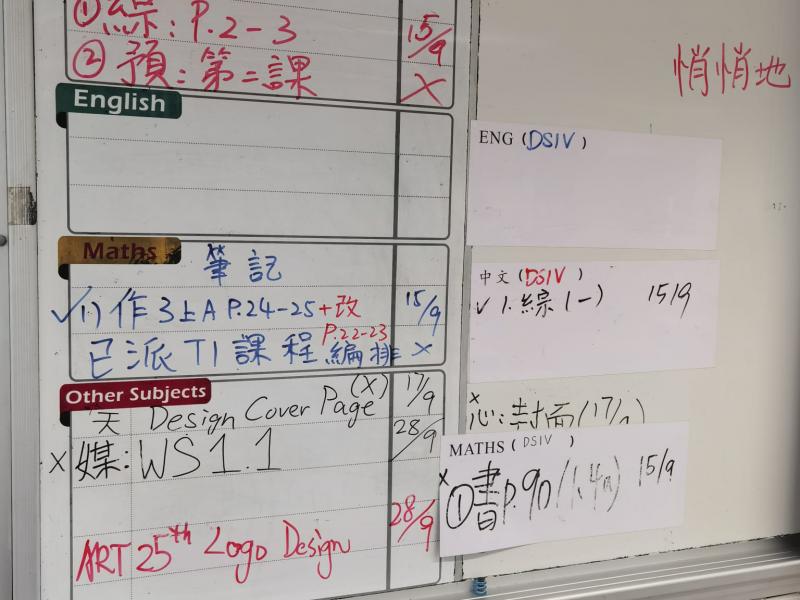 ① 綜: P.2-3 15/9
② 預: 第二課 X
悄悄地
English
ENG (DSIV)
Maths
筆記
✓1) 作3上A P.24-25+改 15/9
P.22-23
已派T1課程編排 X
中文(DSIV)
✓1.綜(一) 15/9
Other Subjects
(X)
Design Cover Page 17/9
X 媒: WS1.1 28/9
ART 25th Logo Design 28/9
X
心:封面(17/9)
MATHS (DSIV)
X
①書P.90 15/9